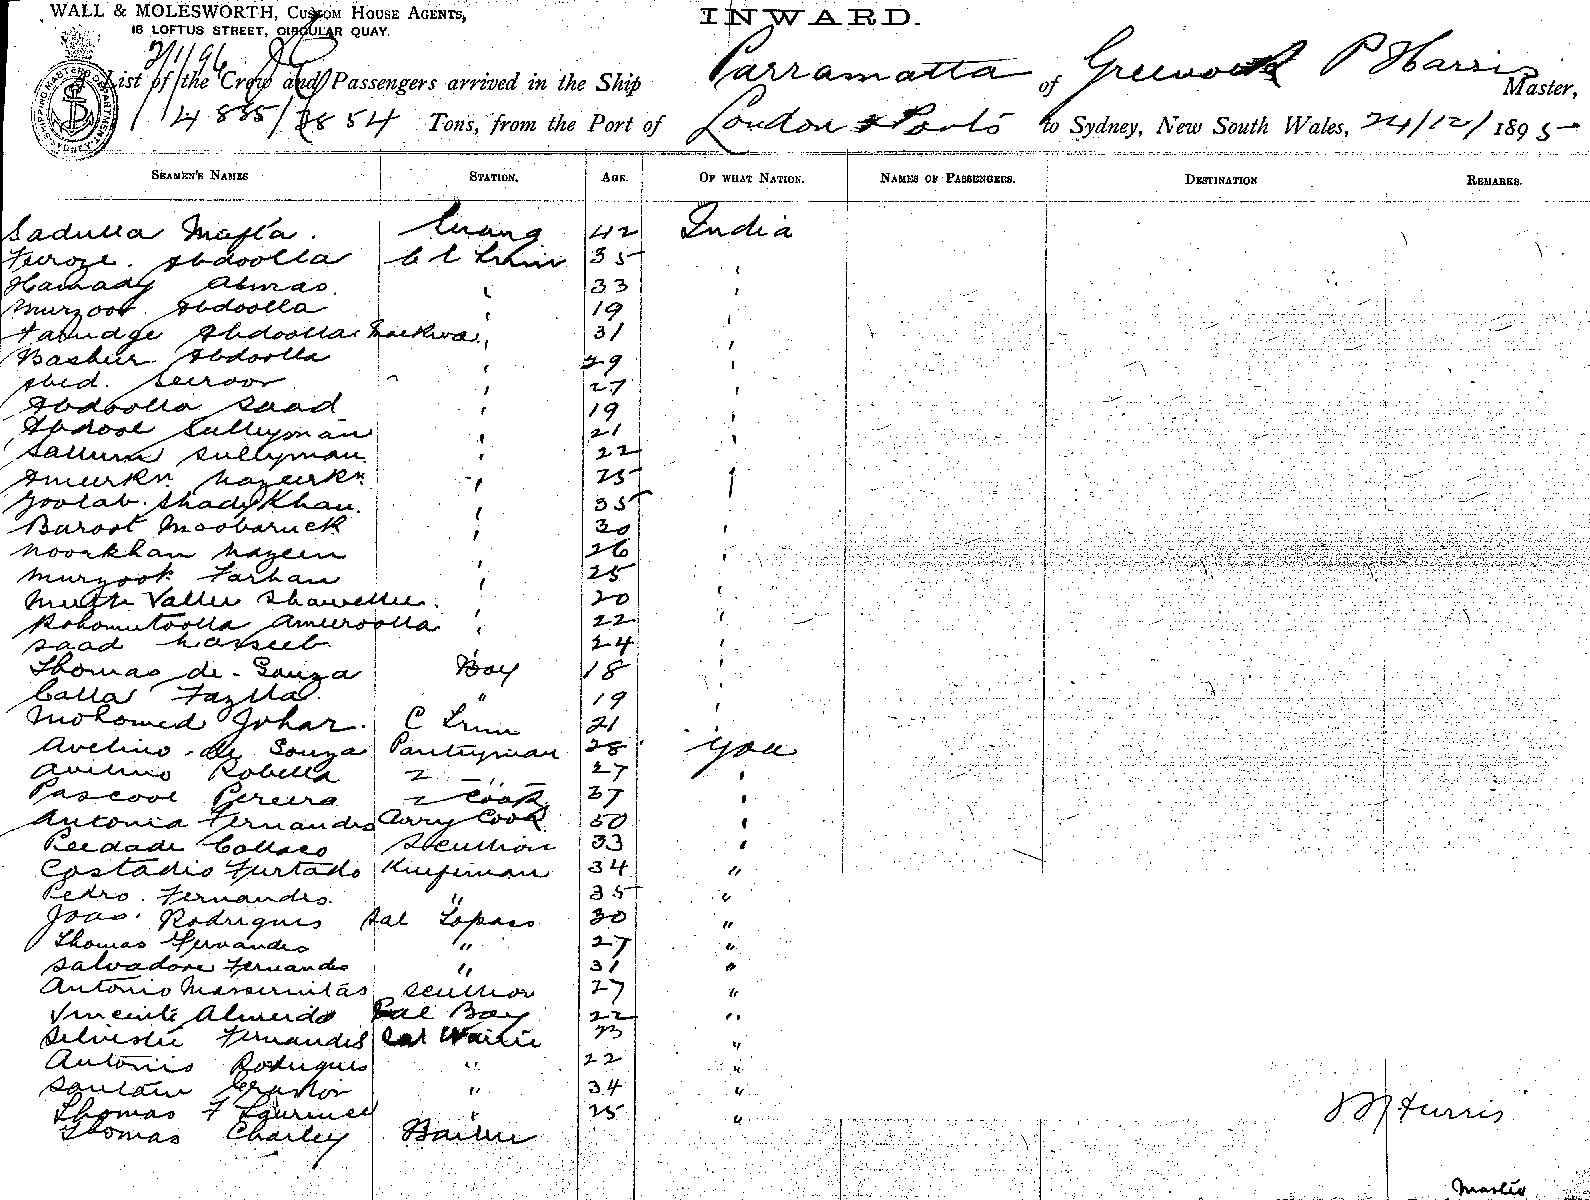 WALL & MOLESWORTH, CUSTOM HOUSE AGENTS,
16 LOFTUS STREET, CIRCULAR QUAY.
INWARD.
2/1/96
A List of the Crew and Passengers arrived in the Ship Parramatta of Greenock P Harris Master,
4885/3854 Tons, from the Port of London & Ports to Sydney, New South Wales, 24/12/1895
SEAMEN'S NAMES STATION. AGE. OF WHAT NATION. NAMES OF PASSENGERS. DESTINATION REMARKS.
Sadulla 42 India
Feroze. Abdoolla 35 "
Hamady Almas. " 33 "
Murzoot Abdoolla " 19 "
Abdoolla " 31 "
Basheer Abdoolla " 29 "
Abed. Seeroor " 27 "
Abdoolla Saad " 19 "
Abdool Sulleyman " 21 "
Sallum Sulleyman " 22 "
" 25 "
Goolab. Shady Khan. " 35 "
Baroot Moobaruck " 30 "
Noorkhan Nazeen " 26 "
Murzook Farhan " 25 "
Vallee Shawellee. " 20 "
Rohomutoolla Ameeroolla " 22 "
Saad Nasseeb " 24 "
Thomas de. Souza Boy 18 "
Calla Fazlla. " 19 "
Mohomed Johar. C Trim 21 "
Avelino. de Souza Pantryman 28 Goa
Avelino Robella 2 " 27 "
Pascool Pereira 2 Cook 37 "
Antonia Fernandes Curry Cook 50 "
Peedade Collaco Scullion 33 "
Costadio Furtado Knifeman 34 "
Pedro. Fernandes. " 35 "
Joao. Rodrigues Sal Topass 30 "
Thomas Fernandes " 27 "
Salvadore Fernandes " 31 "
Antonio Masserinitas Scullion 27 "
Vincente Almeida Sal Boy 22 "
Silvestie Fernandes Sal Waiter 23 "
Antonio Rodrigues " 22 "
" 34 "
Thomas F Laurence " 25 "
Thomas Charley
P Harris
Master